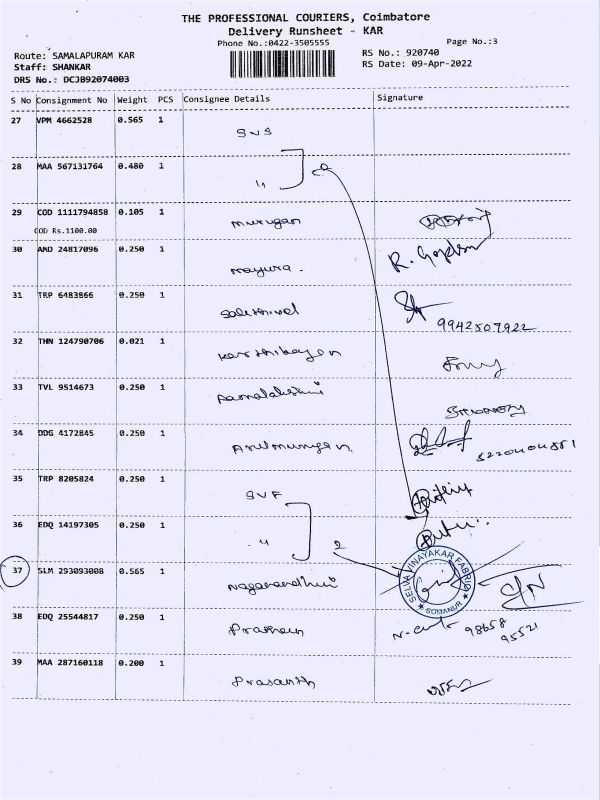 THE PROFESSIONAL COURIERS, Coimbatore
Delivery Runsheet - KAR
Phone No.:0422-3505555
Page No.:3
Route: SAMALAPURAM KAR
RS No.: 920740
Staff: SHANKAR
RS Date: 09-Apr-2022
DRS No.: DCJB92074003
S No Consignment No Weight PCS Consignee Details Signature
27 VPM 4662528 0.565 1
SVS
28 MAA 567131764 0.480 1
2
"
29 COD 1111794858 0.105 1
COD Rs.1100.00
murugan
30 AMD 24817096 0.250 1
R. Gopalan
mayura.
31 TRP 6483866 0.250 1
Sakthivel
9942507922
32 THN 124790706 0.021 1
karthikeyan
33 TVL 9514673 0.250 1
34 DDG 4172845 0.250 1
Arulmurugan
35 TRP 8205824 0.250 1
SVF
36 EDQ 14197305 0.250 1
"
2
37 SLM 293093008 0.565 1
SELVA VINAYAKAR FABRIC
SOMANUR
38 EDQ 25544817 0.250 1
98658
95521
39 MAA 287160118 0.200 1
Prasanth